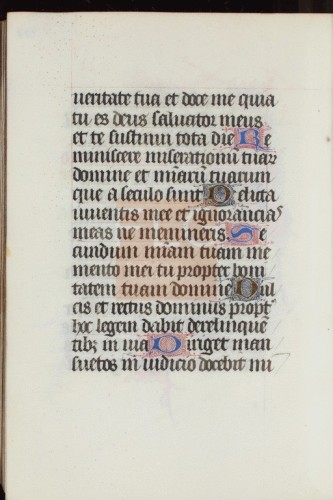 ueritate tua et doce me quia
tu es deus saluator meus
et te sustinui tota die Re
miniscere miserationū tuaꝝ
domine et miāꝝ tuarum
que a seculo sunt Delicta
iuuentis mee et ignorancias
meas ne memineris Se
cundum miam tuam me
mento mei tu propter boni
tatem tuam domine Dul
cis et rectus dominus propt
hoc legem dabit derelinquē
tibꝫ in uia Diriget man
suetos in iudicio docebit mi